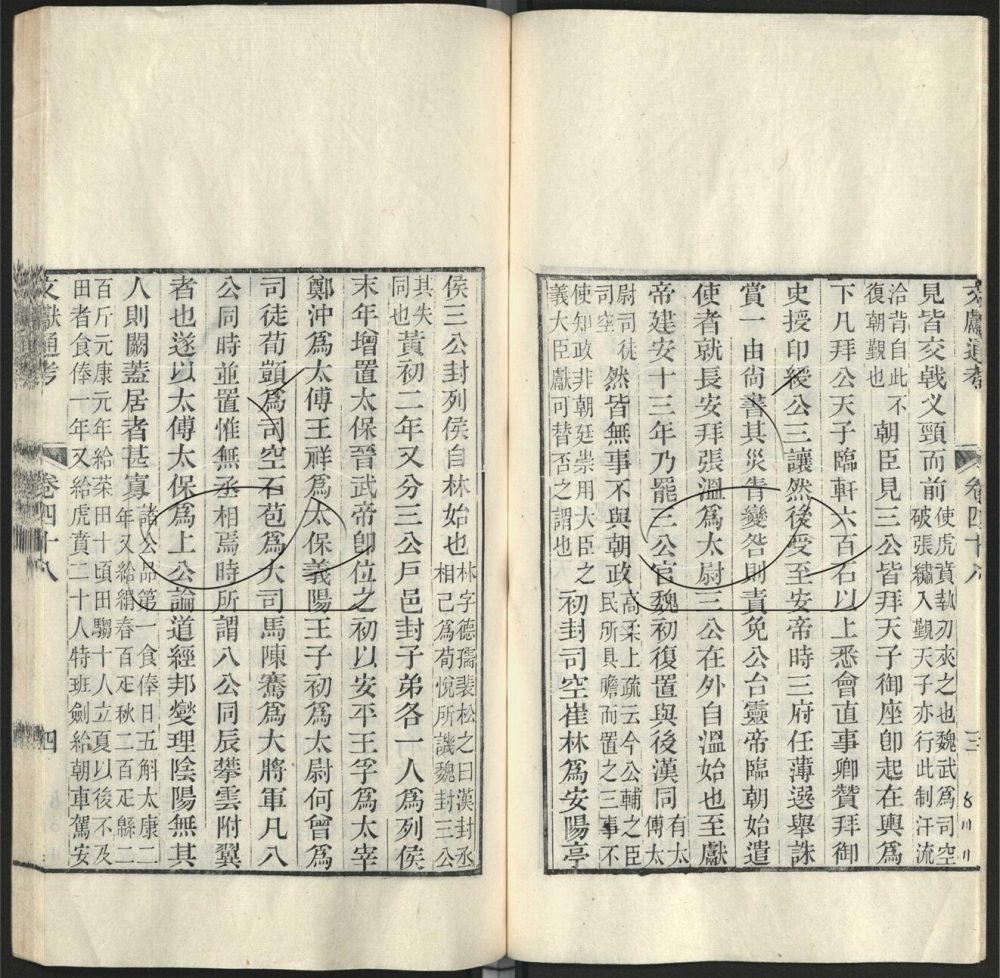 文獻通考 卷四十八 三
見皆交戟乂頸而前使虎賁執刃夾之也魏武為司空
破張繡入覲天子亦行此制汗流
洽背自此不
復朝覲也朝臣見三公皆拜天子御座卽起在輿為
下凡拜公天子臨軒六百石以上悉會直事卿贊拜御
史授印綬公三讓然後受至安帝時三府任薄選舉誅
賞一由尙書其災眚變咎則責免公台靈帝臨朝始遣
使者就長安拜張溫為太尉三公在外自溫始也至獻
帝建安十三年乃罷三公官魏初復置與後漢同有太
傅太
尉司徒
司空然皆無事不與朝政高柔上疏云今公輔之臣
民所具瞻而置之三事不
使知政非朝廷崇用大臣之
義大臣獻可替否之謂也初封司空崔林為安陽亭
侯三公封列侯自林始也林字德孺裴松之曰漢封丞
相己為荀悅所譏魏封三公
其失
同也黃初二年又分三公戶邑封子弟各一人為列侯
末年增置太保晉武帝卽位之初以安平王孚為太宰
鄭沖為太傅王祥為太保義陽王子初為太尉何曾為
司徒荀顗為司空石苞為大司馬陳騫為大將軍凡八
公同時並置惟無丞相焉時所謂八公同辰攀雲附翼
者也遂以太傅太保為上公論道經邦燮理陰陽無其
人則闕蓋居者甚寡諸公品第一食俸日五斛太康二
年又給絹春百疋秋二百疋緜二
百斤元康元年給菜田十頃田騶十人立夏以後不及
田者食俸一年又給虎賁二十人特班劍給朝車駕安
文獻通考 卷四十八 四